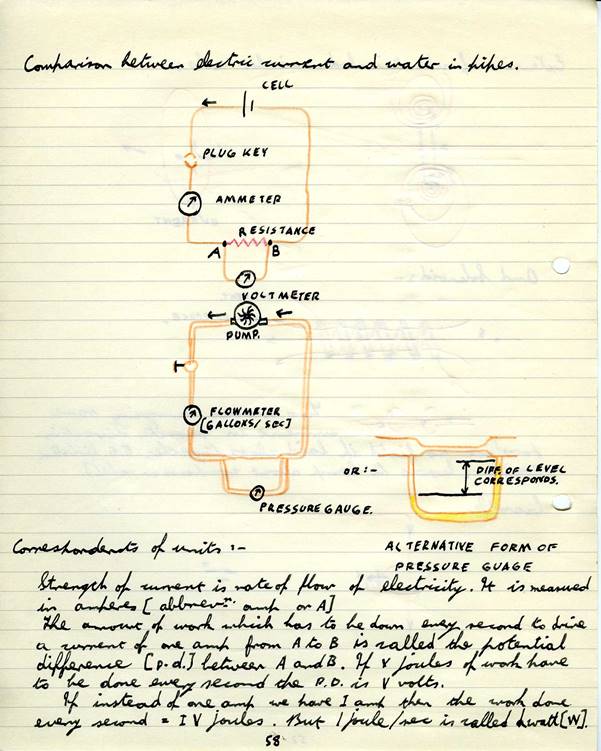 Comparison between electric current and water in pipes.
CELL
PLUG KEY
AMMETER
RESISTANCE
A
B
VOLTMETER
PUMP.
FLOWMETER
[GALLONS/SEC]
PRESSURE GAUGE.
OR:-
DIFF. OF LEVEL
CORRESPONDS.
ALTERNATIVE FORM OF
PRESSURE GUAGE
Correspondents of units :-
Strength of current is rate of flow of electricity. It is measured
in amperes [abbrev. amp or A]
The amount of work which has to be down every second to drive
a current of one amp from A to B is called the potential
difference [p.d.] between A and B. If V joules of work have
to be done every second the P.D. is V volts.
If instead of one amp we have I amp then the work done
every second = IV joules. But 1 joule/sec is called watt [W].
58